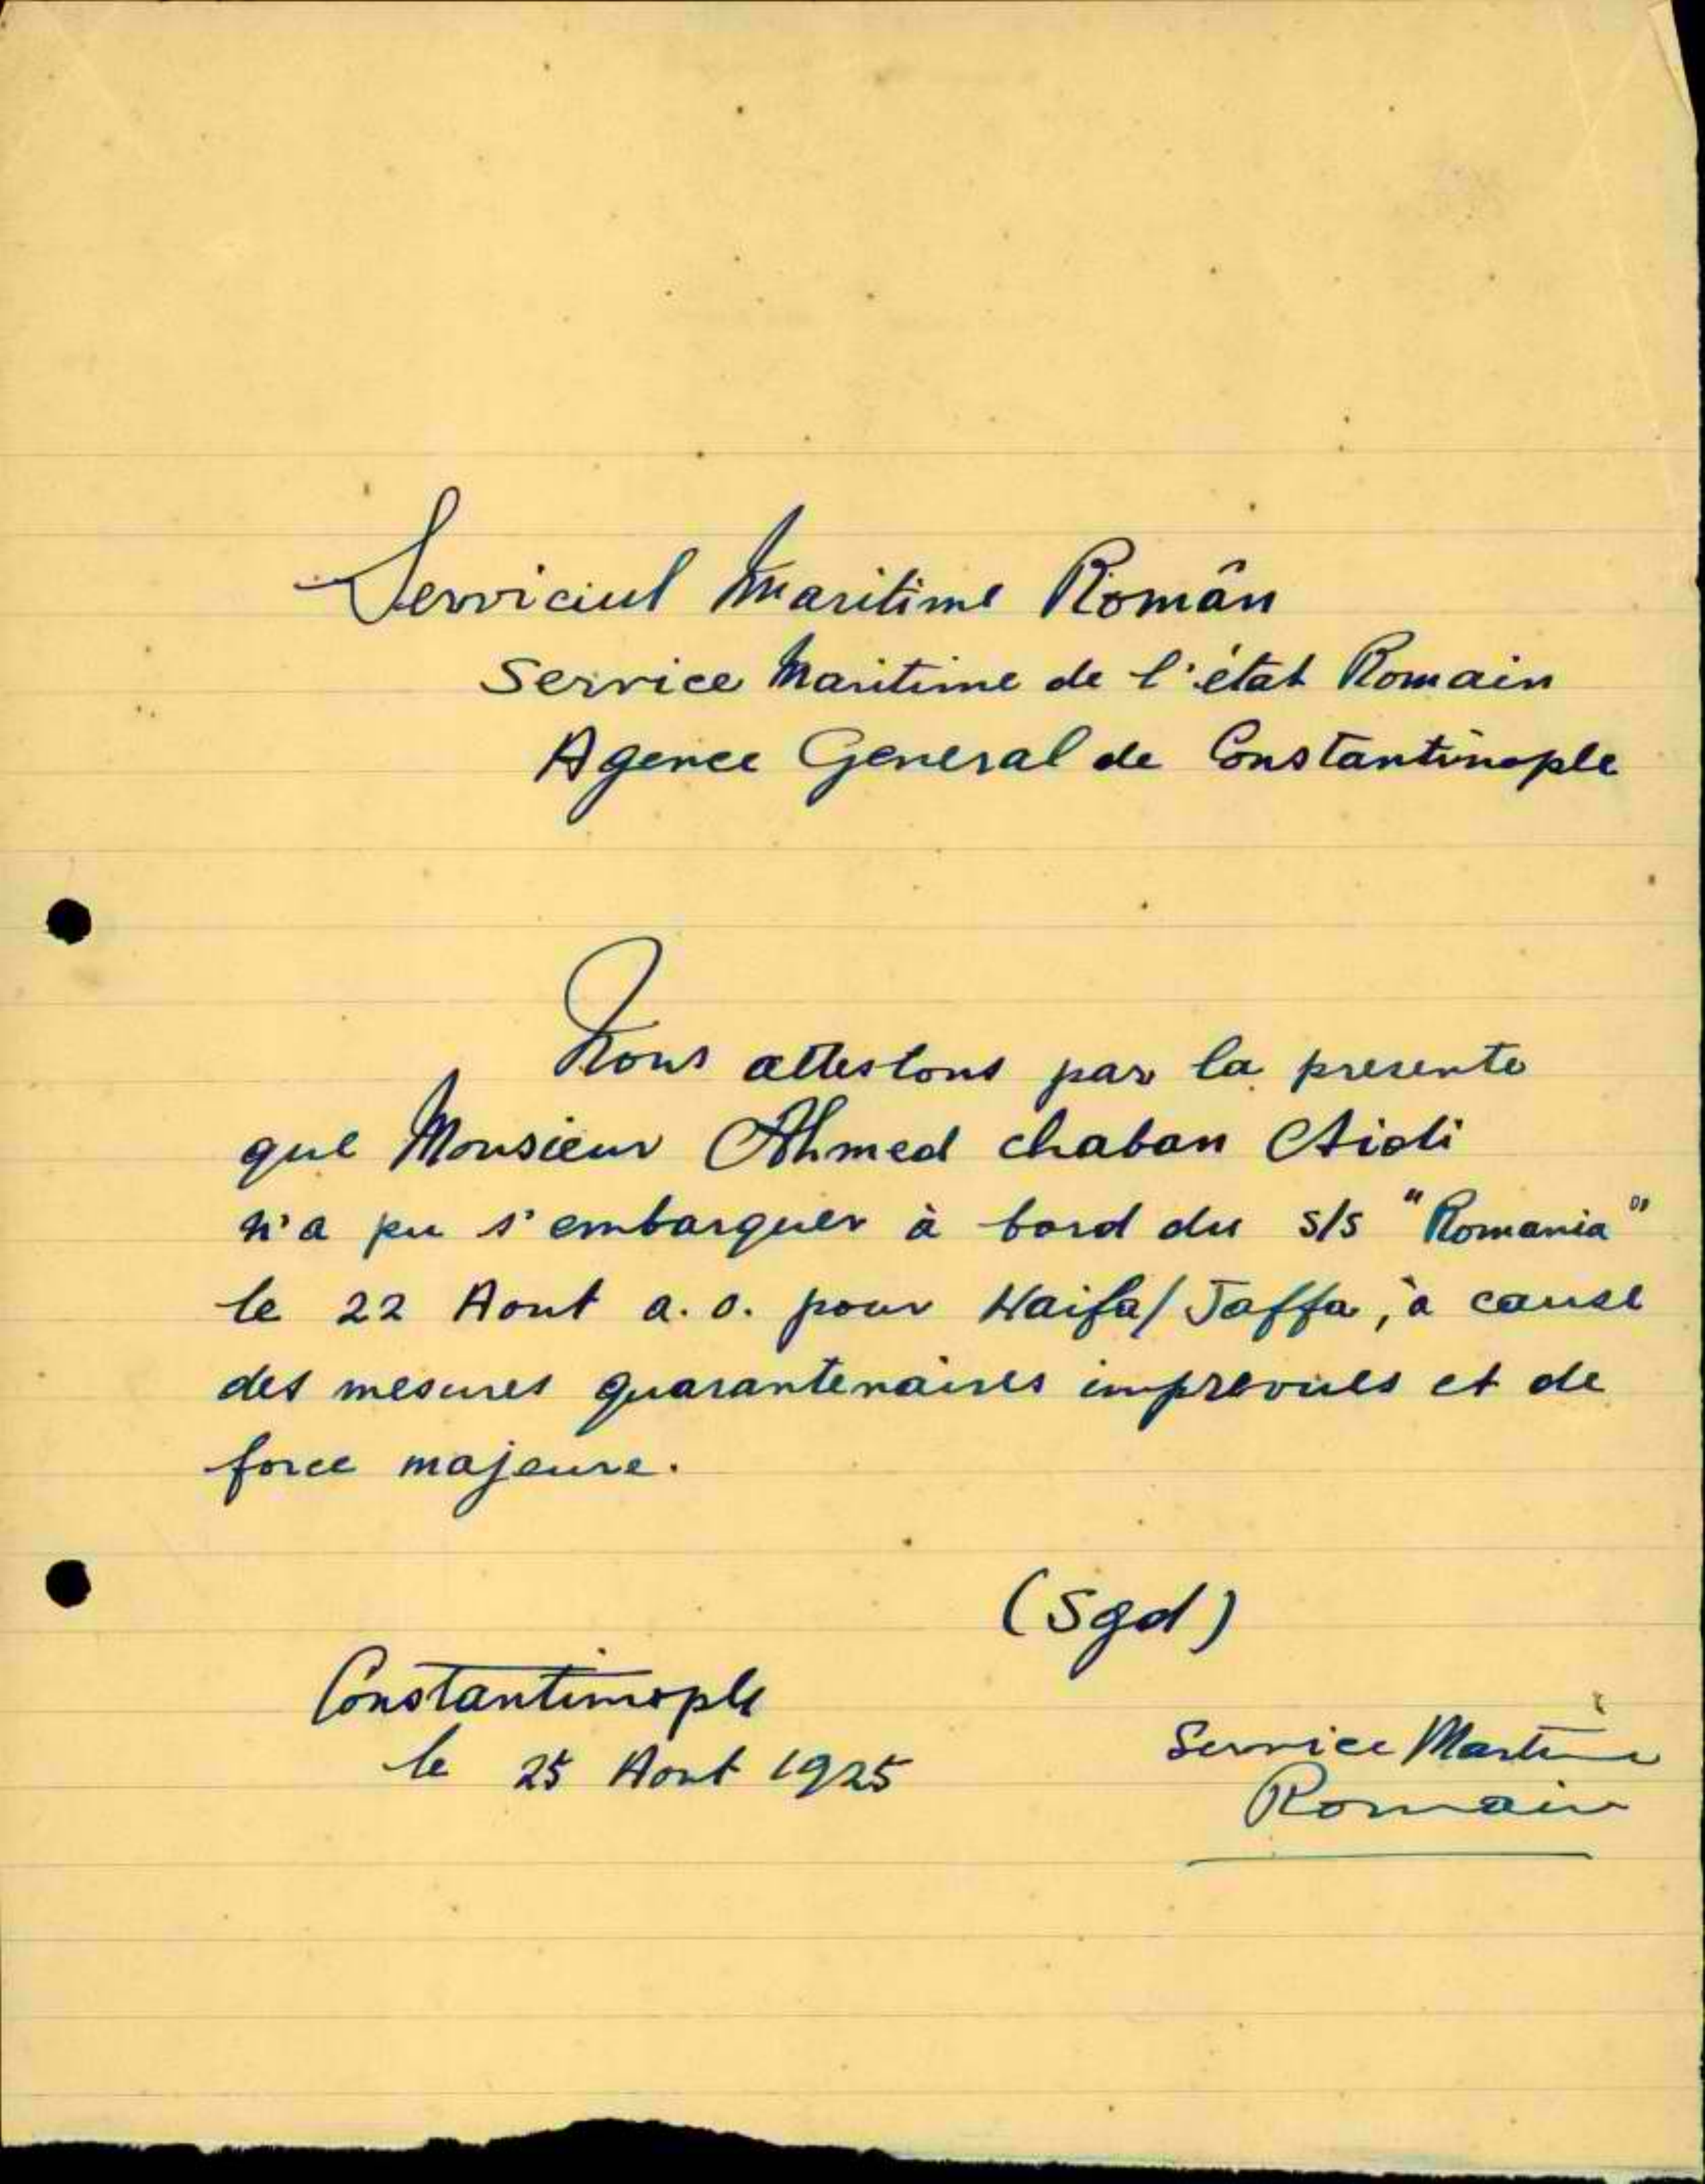 Serviciul Maritime Român
Service Maritime de l'état Romain
Agence General de Constantinople
Nous attestons par la presente
que Monsieur Ahmed chaban Aidi
n'a pu s'embarquer à bord du s/s "Romania"
le 22 Aout a.c. pour Haifa/Jaffa, à cause
des mesures quarantenaires imprevues et de
force majeure.
(Sgd)
Constantinople
le 25 Aout 1925
Service Maritime
Romain